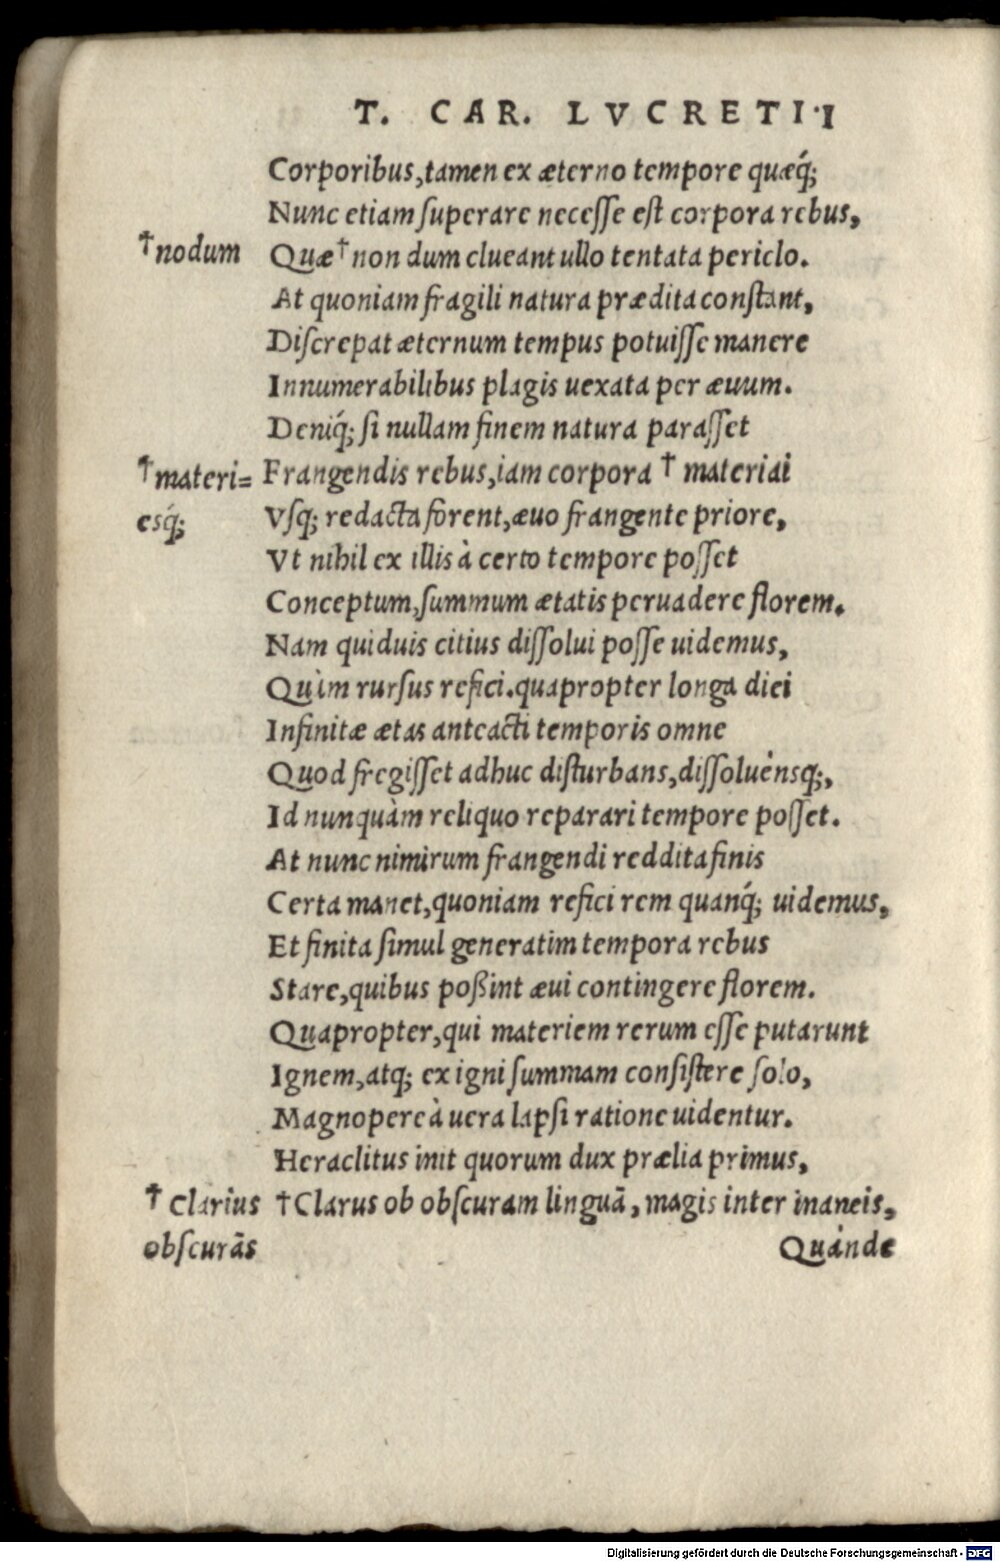 T. CAR. LVCRETI·I
Corporibus,tamen ex æterno tempore quæq́;
Nunc etiam ſuperare neceſſe eſt corpora rebus,
†nodum Quæ † non dum clueant ullo tentata periclo.
At quoniam fragili natura prædita conſtant,
Diſcrepat æternum tempus potuiſſe manere
Innumerabilibus plagis uexata per æuum.
Deniq́; ſi nullam finem natura paraſſet
†materi= Frangendis rebus,iam corpora † materiai
esq́; Vſq; redacta forent,æuo frangente priore,
Vt nihil ex illis à certo tempore poſſet
Conceptum,ſummum ætatis peruadere florem.
Nam quiduis citius diſſolui poſſe uidemus,
Quàm rurſus refici.quapropter longa diei
Infinitæ ætas anteacti temporis omne
Quod fregiſſet adhuc diſturbans,diſſoluènsq;,
Id nunquàm reliquo reparari tempore poſſet.
At nunc nimirum frangendi reddita finis
Certa manet,quoniam refici rem quanq́; uidemus,
Et finita ſimul generatim tempora rebus
Stare,quibus poßint æui contingere florem.
Quapropter,qui materiem rerum eſſe putarunt
Ignem,atq; ex igni ſummam conſiſtere ſolo,
Magnopere à uera lapſi ratione uidentur.
Heraclitus init quorum dux prælia primus,
† Clarius † Clarus ob obſcuram linguā, magis inter inaneis,
obſcurās Quànde
Digitalisierung gefördert durch die Deutsche Forschungsgemeinschaft - DFG